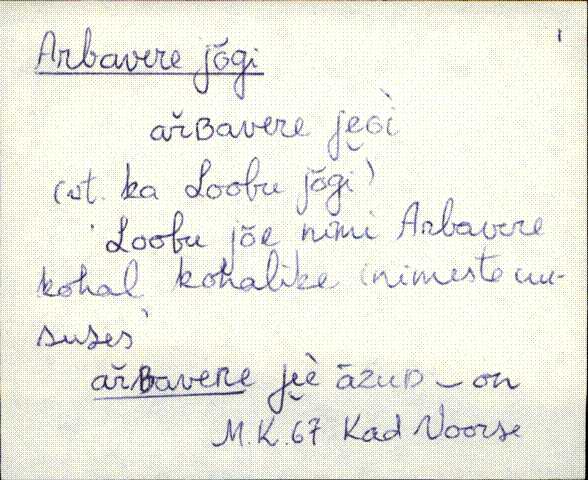 Arbavere jõgi
ař​ʙavere je̮ɢì
(vt. ka Loobu jõgi)
Loobu jõe nimi Arbavere
kohal kohalike inimeste uu-
suses
ařʙavere je̮è āzuᴅ – on
M.K. 67 Kad Voorse